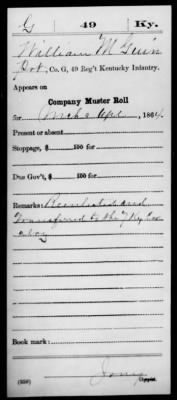 G 49 Ky.
William McGuin
Pvt., Co. G, 49 Reg't Kentucky Infantry.
Appears on
Company Muster Roll
for Mch & Apl, 1864.
Present or absent
Stoppage, $ 100 for
Due Gov't, $ 100 for
Remarks: Reenlisted and
transferred to the 7 Ky Cav
Book mark:
(358) Copyist.